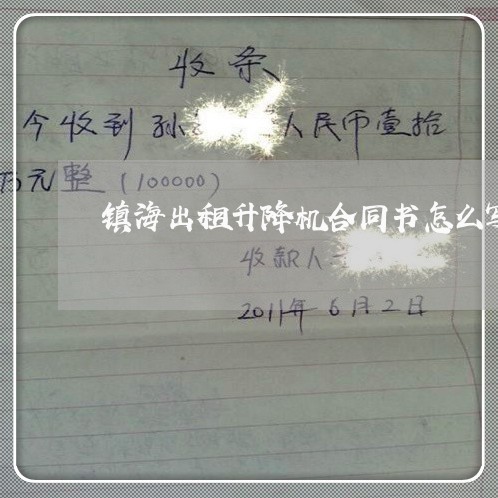 收条
今收到孙 人民币壹拾
万元整（100000）
镇海出租升降机合同书怎么写
收款人
2011年6月2日